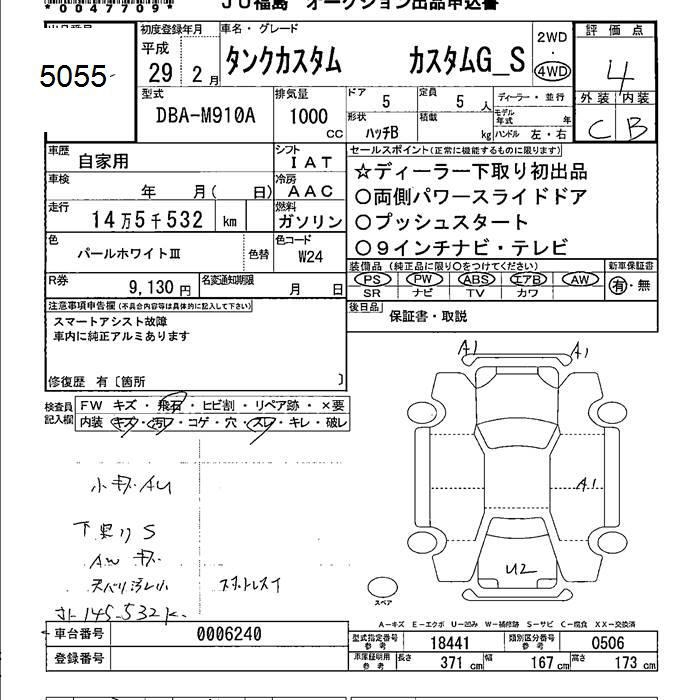 *0047709*
ＪＵ福島 オークション出品申込書
5055
初度登録年月
平成
29年 2月
車名・グレード
タンクカスタム カスタムG_S
2WD
4WD
評価点
4
外装 内装
C B
型式
DBA-M910A
排気量
1000 CC
ドア 5
定員 5人
形状 ハッチB
積載 kg
ディーラー・並行
モデル年式 年
ハンドル 左・右
車歴 自家用
シフト IAT
車検 年 月( 日)
冷房 AAC
走行 14万5千532 km
燃料 ガソリン
色 パールホワイトⅢ 色替
色コード W24
R券 9,130円
名変通知期限 月 日
セールスポイント(正常に機能するものに限ります)
☆ディーラー下取り初出品
○両側パワースライドドア
○プッシュスタート
○9インチナビ・テレビ
装備品（純正品に限り○をつけてください）
PS PW ABS エアB AW
SR ナビ TV カワ
新車保証書
有・無
後日品 保証書・取説
注意事項申告欄(不具合内容等は具体的に記入して下さい)
スマートアシスト故障
車内に純正アルミあります
修復歴 有〔箇所 〕
検査員記入欄
FW キズ・飛石・ヒビ割・リペア跡・×要
内装 キズ・汚れ・コゲ・穴・スレ・キレ・破レ
A1 A1
A1
U2
小キズ AU
S
AW キズ
145.532k
スペア
A-キズ E-エクボ U-凹み W-補修跡 S-サビ C-腐食 XX-交換済
車台番号 0006240
登録番号
型式指定番号参考 18441
類別区分番号参考 0506
車庫証明用参考 長さ 371cm 幅 167cm 高さ 173cm